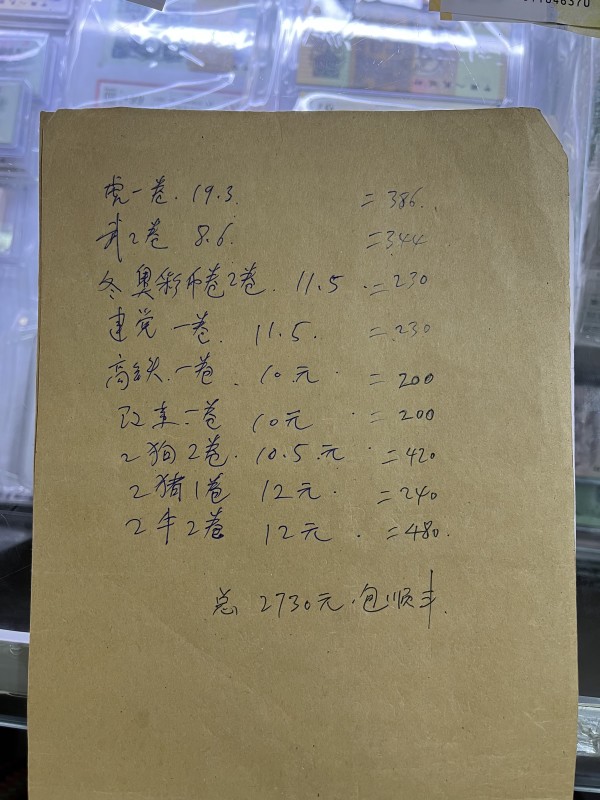 虎一卷. 19.3. =386.
武2卷 8.6. =344
冬奥彩币卷2卷. 11.5. =230
建党一卷. 11.5. =230
高铁.一卷. 10元. =200
改丰一卷 10元 =200
2狗2卷. 10.5.元. =420
2猪1卷 12元. =240
2牛2卷 12元. =480.
总 2730元.包顺丰.